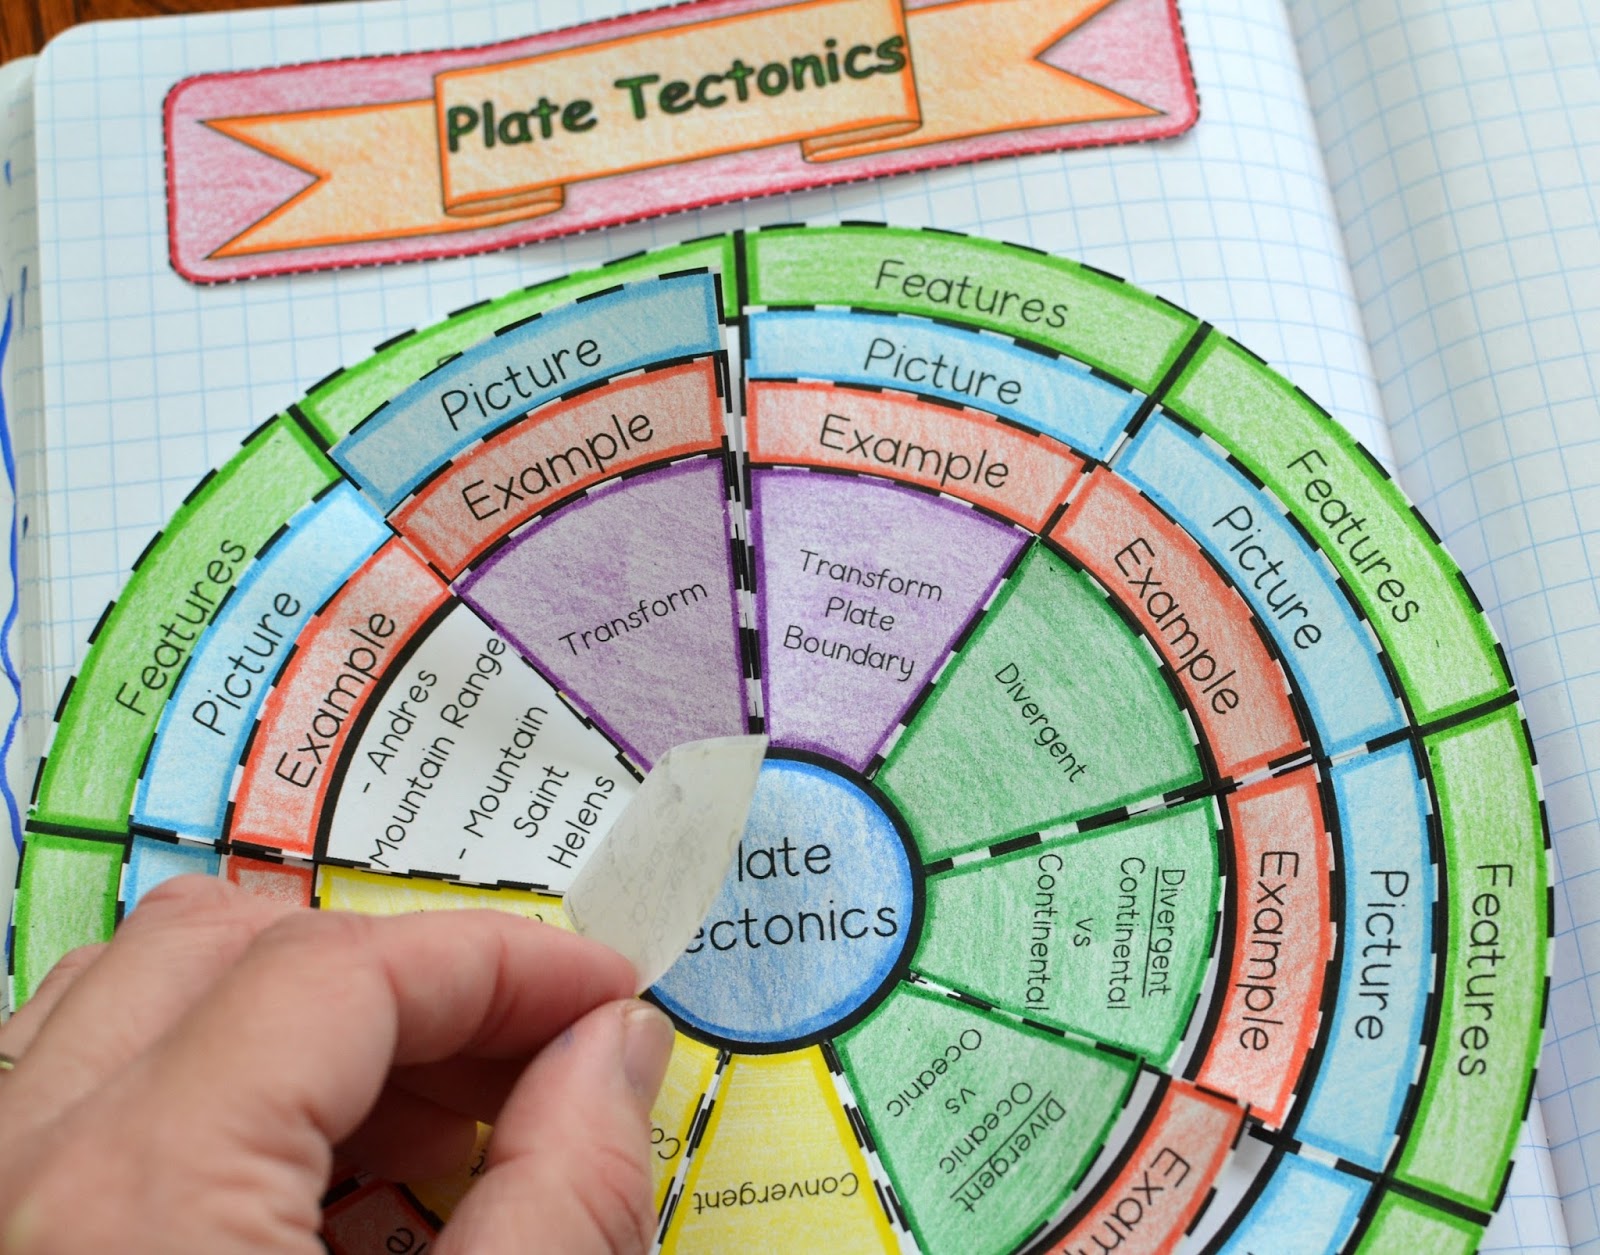 Plate Tectonics
Features
Picture
Example
Transform
Plate
Boundary
Features
Picture
Example
Divergent
Features
Picture
Example
Divergent
Continental
vs
Continental
Divergent
Oceanic
vs
Oceanic
Convergent
Features
Picture
Example
- Andres
Mountain Range
- Mountain
Saint
Helens
Picture
Example
Transform